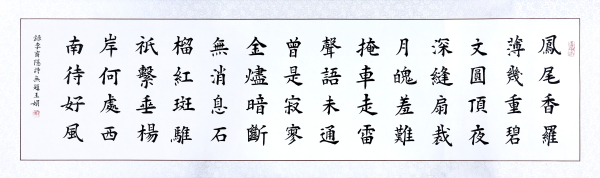 鳳尾香羅
薄幾重碧
文圓頂夜
深縫扇裁
月魄羞難
掩車走雷
聲語未通
曾是寂寥
金燼暗斷
無消息石
榴紅斑騅
祇繫垂楊
岸何處西
南待好風
錄李商隱詩無題